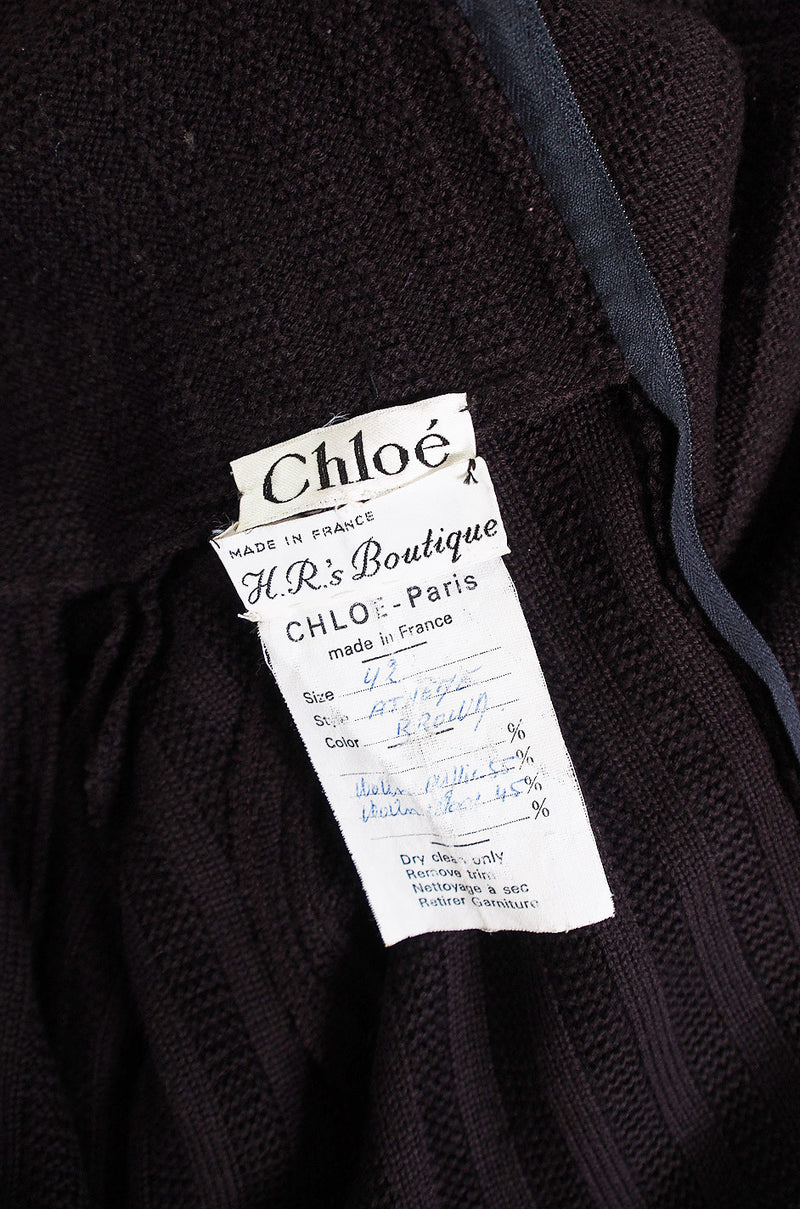 Chloé
MADE IN FRANCE
H.R.'s Boutique
CHLOE-Paris
made in France
Size 42
Style
Color BROWN
%
55%
45%
%
Dry clean only
Remove trim
Nettoyage à sec
Retirer Garniture